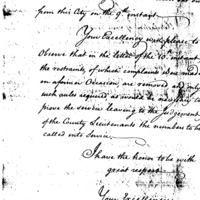 from this City on the 9th instant.
Your Excellency will please to
Observe that in the letter of the 10th instant
the restraints of which complaint was made
on a former Occasion are removed and only
such rules required as would be necessary to
prove the service leaving to the Judgement
of the County Lieutenants the number to be
called into Service.
I have the honor to be with
great respect
Your Excellency